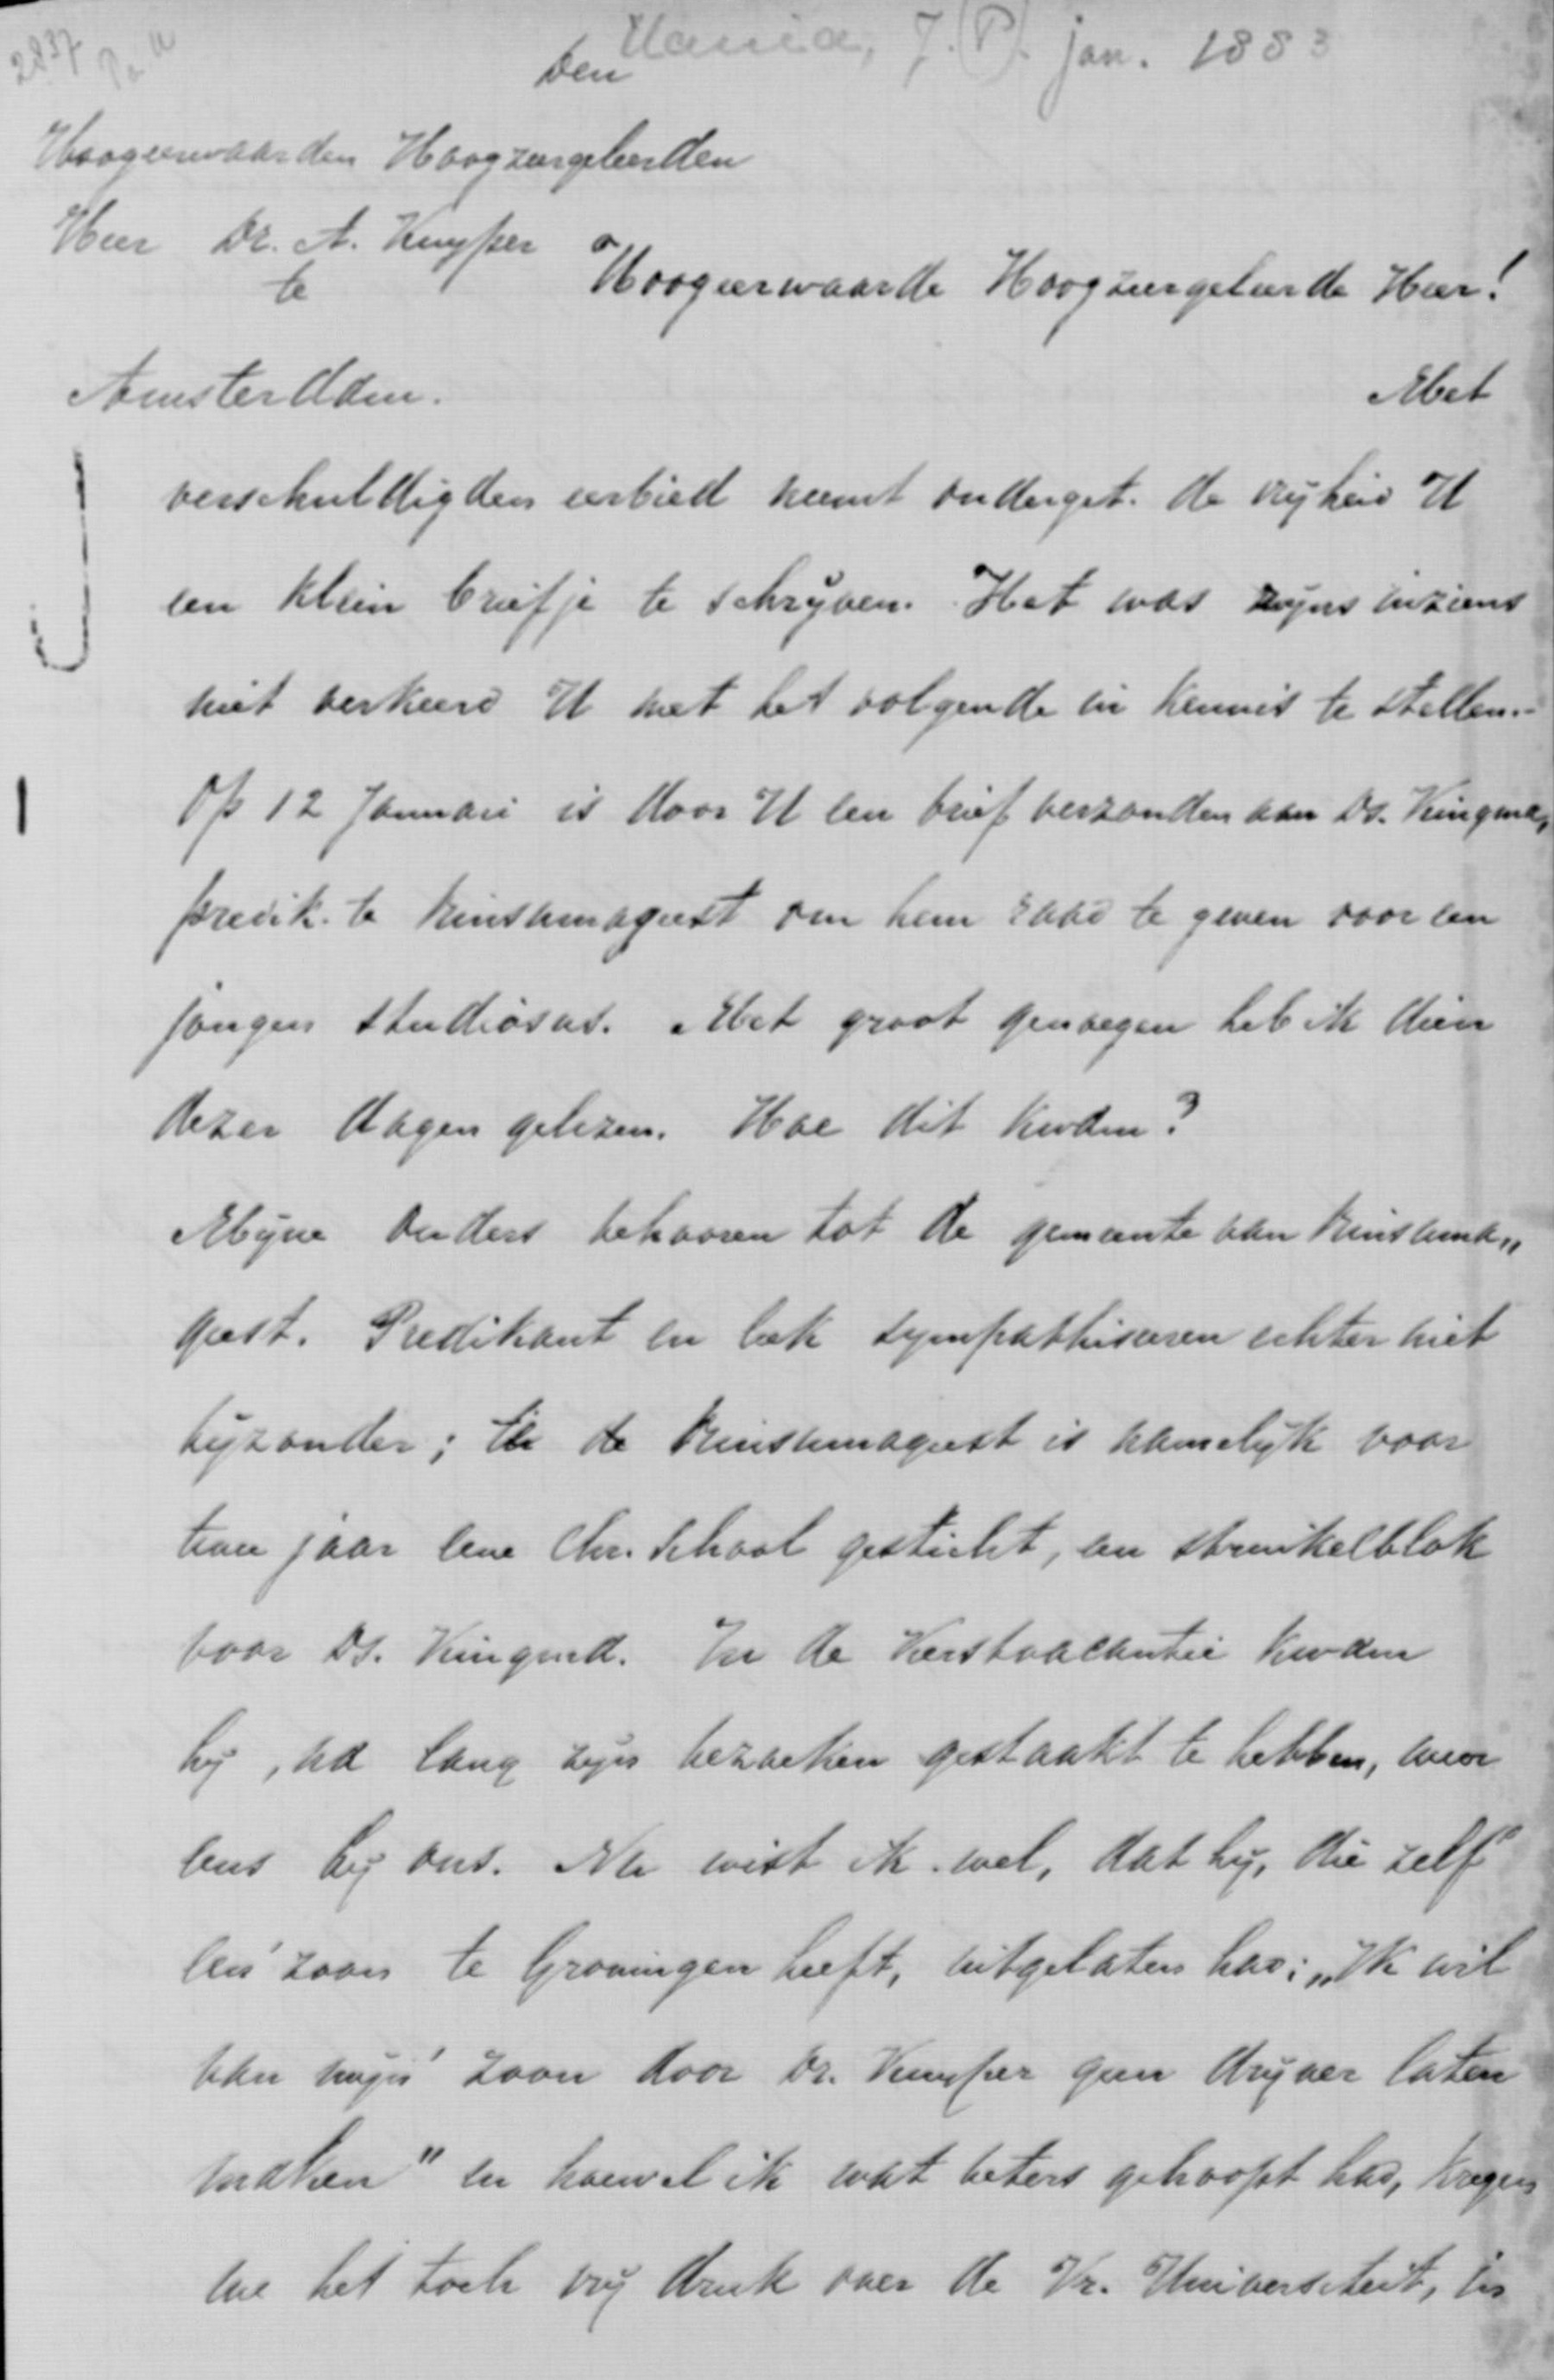 2837
Hania, J. (P). jan. 1883
Den
Hoogeerwaarden Hoogzeergeleerden
Heer Dr. A. Kuyper
te
Hoogeerwaarde Hoogzeergeleerde Heer!
Amsterdam.
Met
verschuldigden eerbied neemt onderget. de vrijheid U
een klein briefje te schrijven. Het was zijns inziens
niet verkeerd U met het volgende in kennis te stellen.-
Op 12 Januari is door U een brief verzonden aan Ds. Kingma,
predik. te Rinsumageest om hem raad te geven voor een
jongen studiosus. Met groot genoegen heb ik dien
dezer dagen gelezen. Hoe dit kwam?
Mijne ouders behooren tot de gemeente van Rinsuma„
geest. Predikant en leek sympathiseeren echter niet
bijzonder; te Rinsumageest is namelijk voor
twee jaar eene Chr. School gesticht, een struikelblok
voor Ds. Kingma. In de Kerstvacantie kwam
hij, na lang zijn bezoeken gestaakt te hebben, weer
eens bij ons. Nu wist ik wel, dat hij, die zelf
een' zoon te Groningen heeft, uitgelaten had: „Ik wil
van mijn' zoon door Dr. Kuyper geen drijver laten
maken" en hoewel ik wat beters gehoopt had, kregen
we het toch vrij druk over de Vr. Universiteit, en